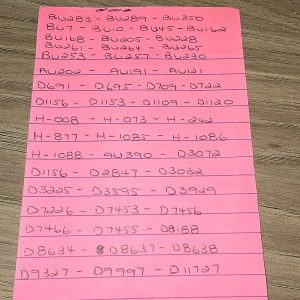 BU283 - BU289 - BU350
BU7 - BU10 - BU45 - BU162
BU168 - BU205 - BU228
BU261 - BU264 - BU265
BU253 - BU257 - BU230
AU202 - AU191 - AU121
D691 - D695 - D709 - D722
D1156 - D1153 - D1109 - D1120
H-008 - H-073 - H-242
H-877 - H-1085 - H-1086
H-1088 - AU390 - D3072
D1156 - D2847 - D3032
D3225 - D3595 - D3929
D7226 - D7453 - D7456
D7466 - D7455 - D8188
D8634 - D8637 - D8638
D9327 - D9997 - D11727